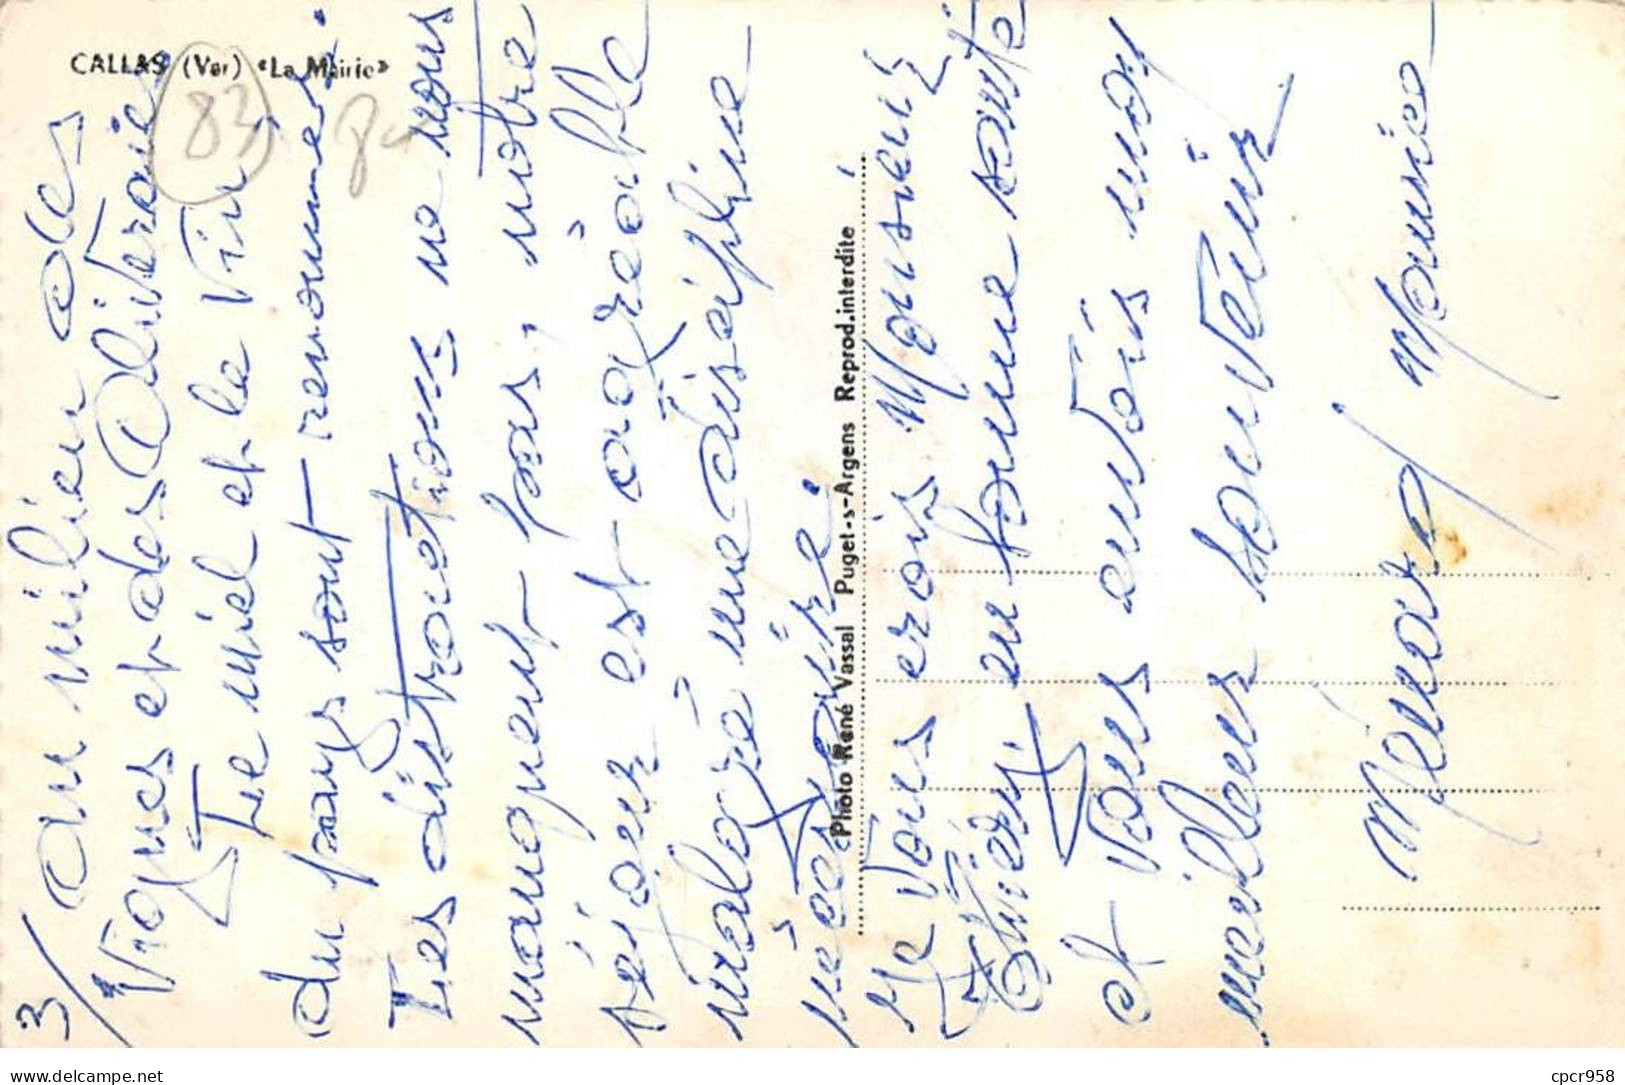 CALLAS (Var) «La Mairie»
83
3/
au milieu des
Vignes et des Oliveraies
Le miel et le Vin
du pays sont renommés.
Les distractions ne nous
manquent pas, notre
séjour est agréable
malgré une discipline
nécessaire.
Photo René Vassal Puget-s-Argens Reprod. interdite
Je vous crois Monsieur
Thiéry, en bonne santé
et vous envois mon
meilleur souvenir
Ménard Maurice
delcampe.net
cpcr958